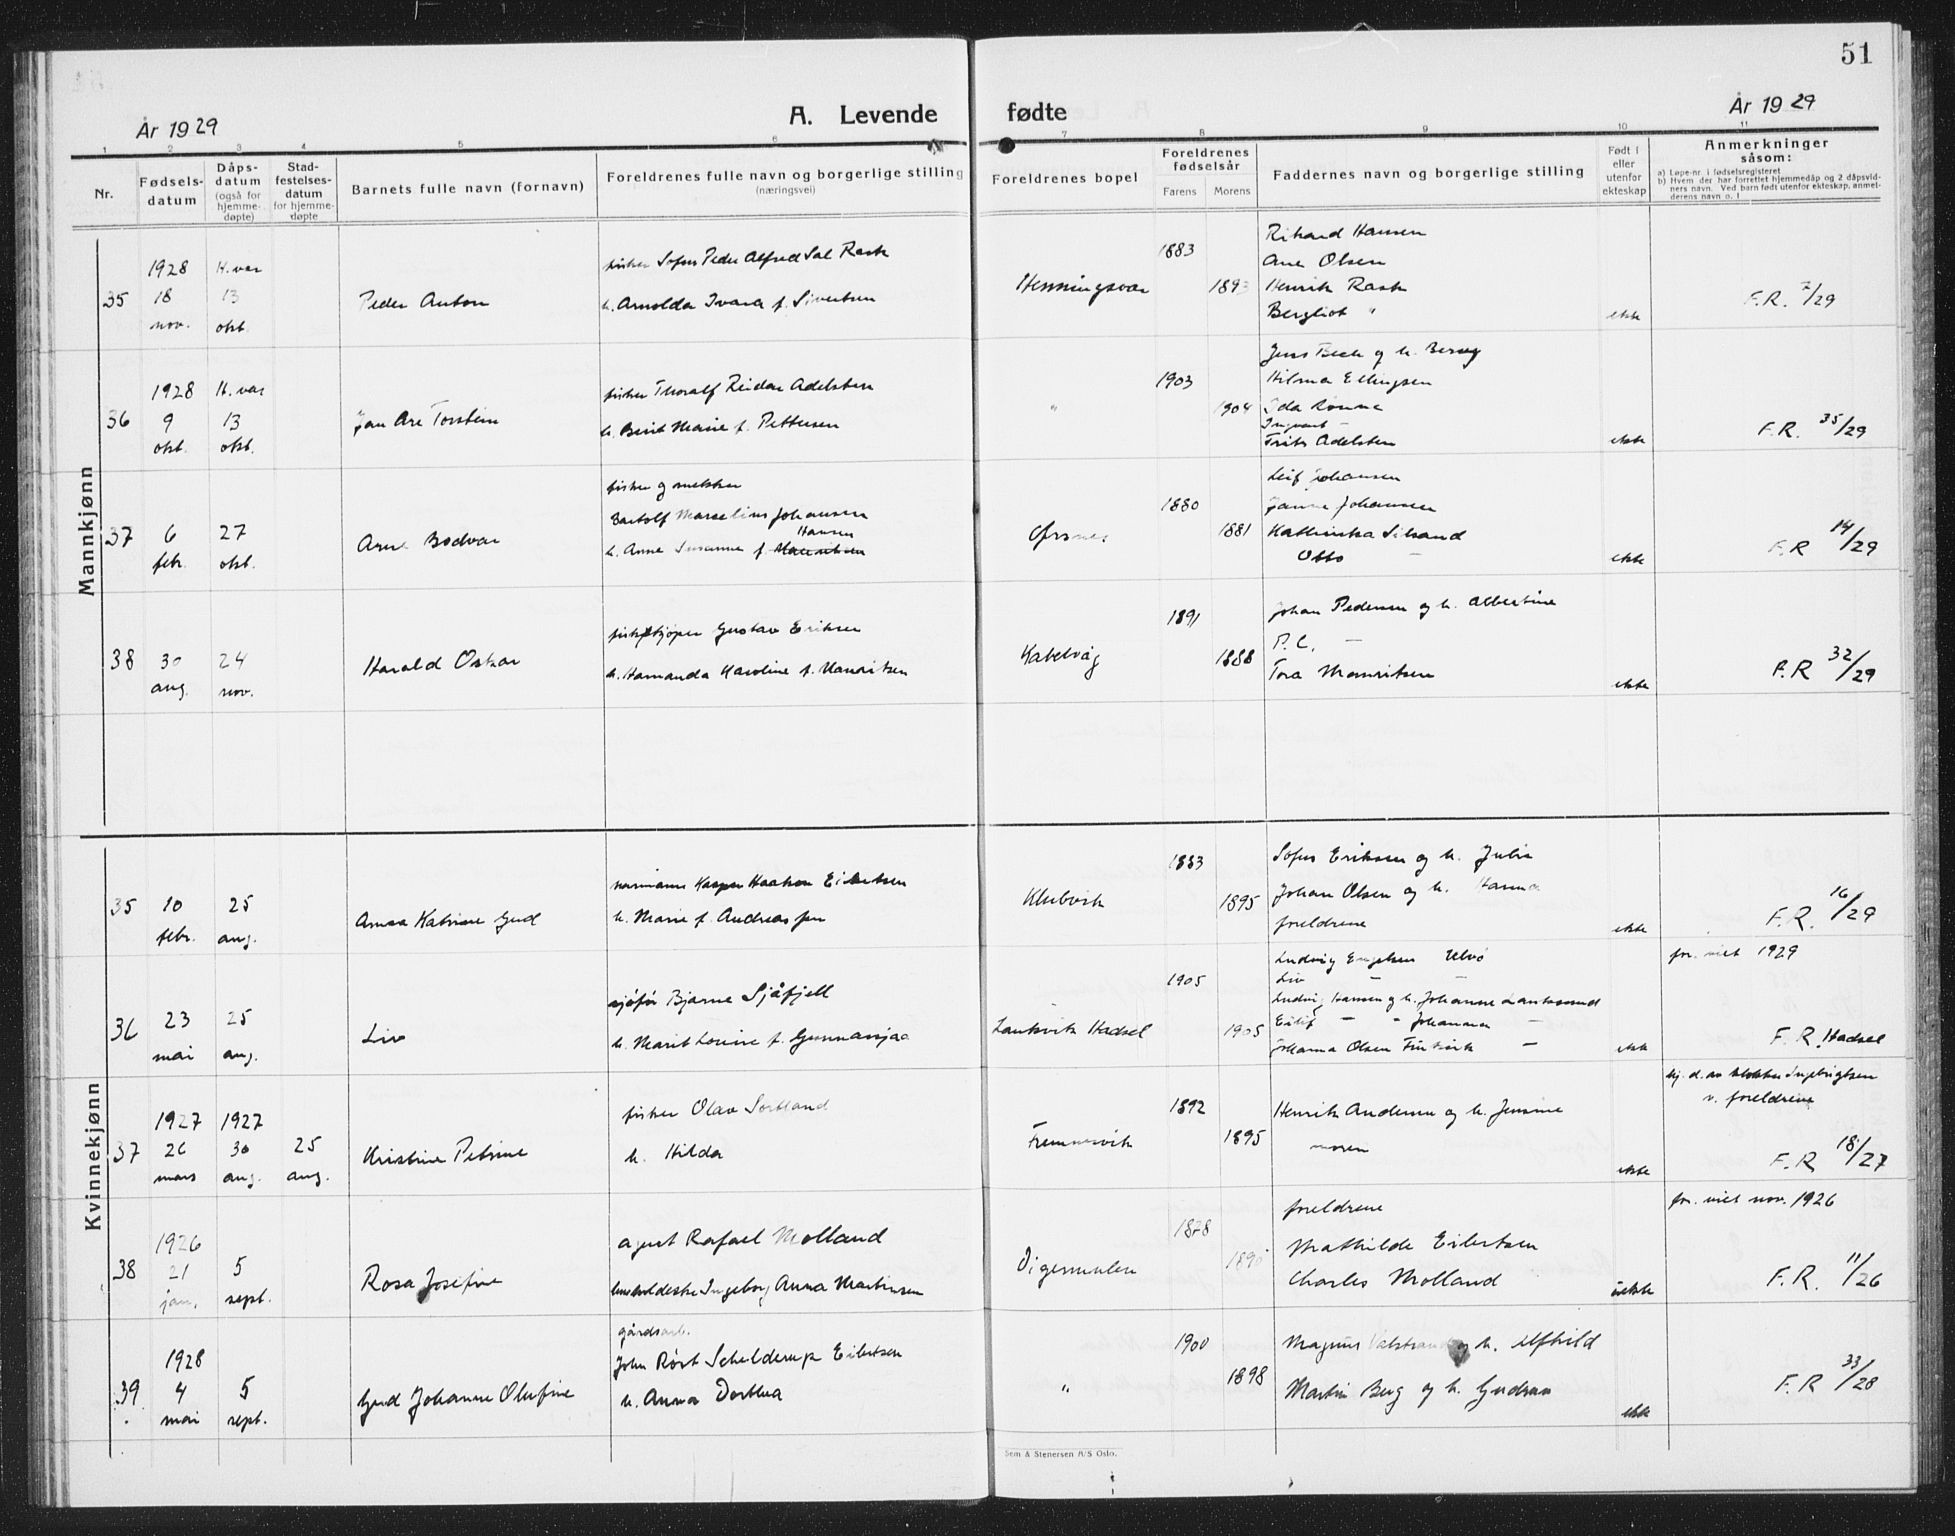 51
År 1929
A. Levende
fødte
År 1929
1 2 3 4 5 6 7 8 9 10 11
Nr.
Fødsels-
datum
Dåps-
datum
(også for
hjemme-
døpte)
Stad-
festelses-
datum
for hjemme-
døpte
Barnets fulle navn (fornavn)
Foreldrenes fulle navn og borgerlige stilling
(næringsvei)
Foreldrenes bopel
Foreldrenes
fødselsår
Farens
Morens
Faddernes navn og borgerlige stilling
Født i
eller
utenfor
ekteskap
Anmerkninger
såsom:
a) Løpe-nr. i fødselsregisteret
b) Hvem der har forrettet hjemmedåp og 2 dåpsvid-
ners navn. Ved barn født utenfor ekteskap, anmel-
derens navn o. l
Mannkjønn
35
1928
18
nov.
H.var
13
okt.
Peder Anton
fisker Sofus Peder Alfred Sal Rask
h. Arnolda Ivara f. Sivertsen
Henningsvær
1883
1893
Rikard Hansen
Ane Olsen
Henrik Rask
Bergliot "
ekte
F.R. 7/29
36
1928
9
okt.
H.var
13
okt.
Jan Are Torstein
fisker Thoralf Reidar Adelsten
h. Berit Marie f. Pettersen
"
1903
1904
Hilma Ellingsen
Ida Rønne
Frits Adelsten
ekte
F.R. 35/29
37
6
febr.
27
okt.
Arne Bodvar
fisker og snekker
Bartolf Marselius Johansen
Hansen
h. Anne Susanne f.
Ørsnes
1880
1881
Leif Johansen
Johansen
Otto —
ekte
F.R 14/29
38
30
aug.
24
nov.
Harald Oskar
fiskekjøper Gustav Eriksen
h. Hamanda Karoline f. Mauritsen
Kabelvåg
1891
1888
Johan Pedersen og h. Albertine
P.C. —
Tora Mauritsen
ekte
F.R 32/29
Kvinnekjønn
35
10
febr.
25
aug.
Anna Katrine Gud
Eilertsen
h. Marie f. Andreassen
Klubvik
1883
1895
Sofus Eriksen og h. Julie
Johan Olsen og h. Hanna
foreldrene
ekte
F.R. 16/29
36
23
mai
25
aug.
Liv
sjåfør Bjarne Sjåfjell
h. Marit Lovise f.
Laukvik Hadsel
1905
1905
Ludvig Engelsen Ulvø
Liv — —
Ludvig Hansen og h. Johanne Laukosund
Eilif — " Johanna —
Johanna Olsen —
ekte
for. viet 1929
F.R. Hadsel
37
1927
26
mars
1927
30
aug.
25
aug.
Kristine Petrine
fisker Olav Sortland
h. Hilda
1892
1895
Henrik Andersen og h. Jensine
moren
ekte
hj. d. av klokker Ingebrigtsen
v. foreldrene
F.R 18/27
38
1926
21
jan.
5
sept.
Rosa Josefine
agent Rafael Molland
husholderske Ingeborg Anna Martinsen
Digermulen
1878
1890
foreldrene
Mathilde Eilertsen
Charles Molland
uekte
for. viet nov. 1926
F.R. 11/26
39
1928
4
mai
5
sept.
Gud Johanne Olufine
gårdsarb.
John Røst Schelderup Eilertsen
h. Anna Dorthea
"
1900
1898
Magnus Valstrand og h. Alfhild
Martin Berg og h. Gudrun
ekte
F.R 33/28
Sem & Stenersen A/S Oslo.